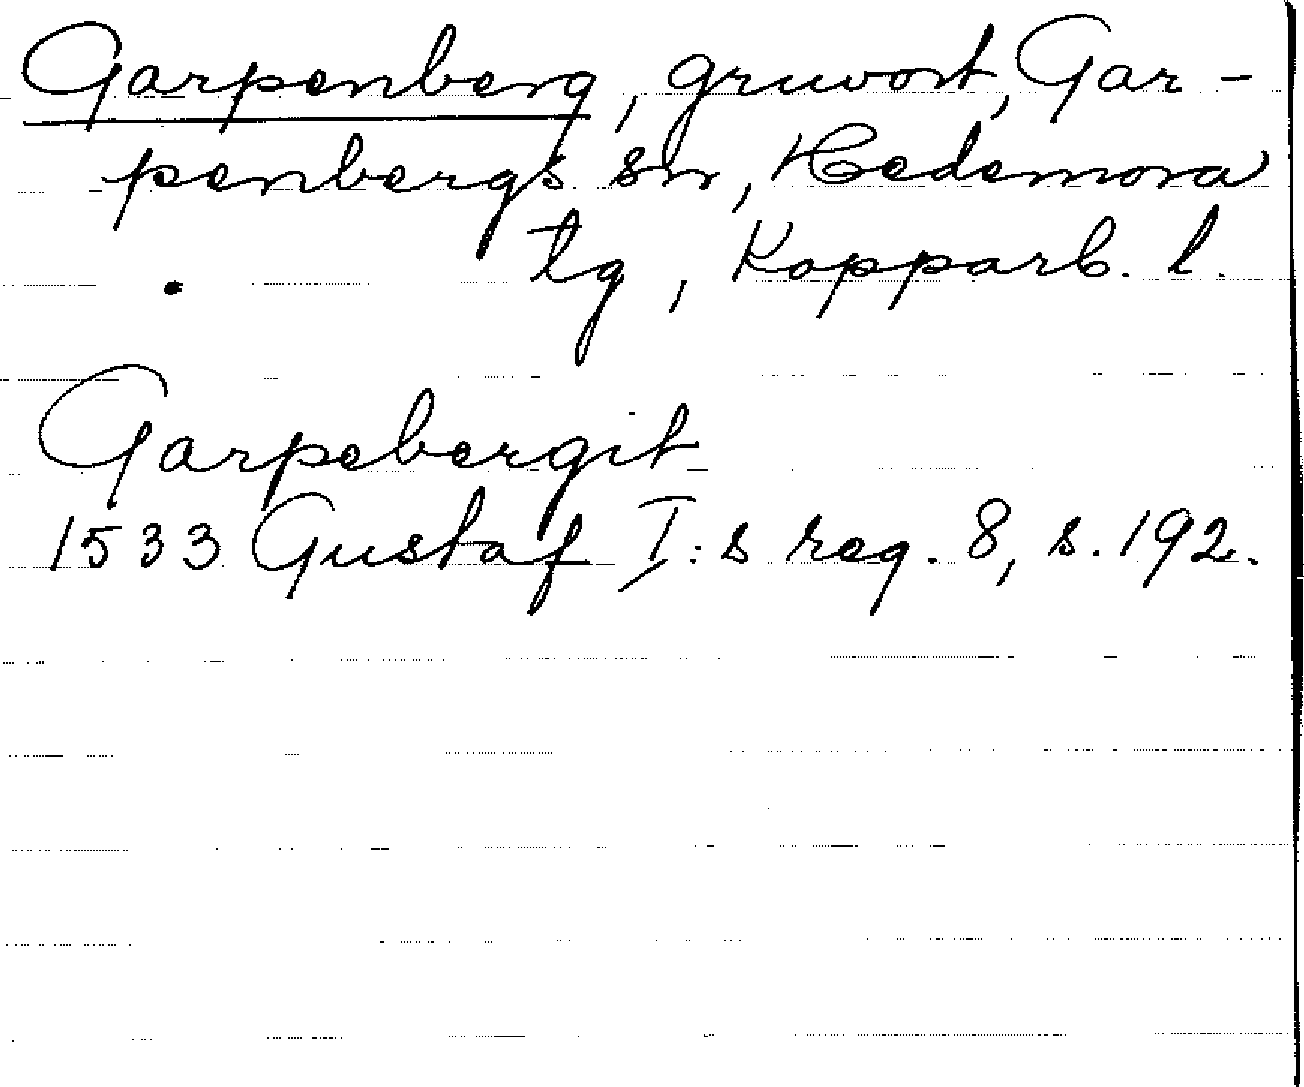 Garpenberg, gruvort, Gar-
penbergs sn, Hedemora
tg, Kopparb. l.
Garpebergit
1533 Gustaf I:s reg. 8, s. 192.